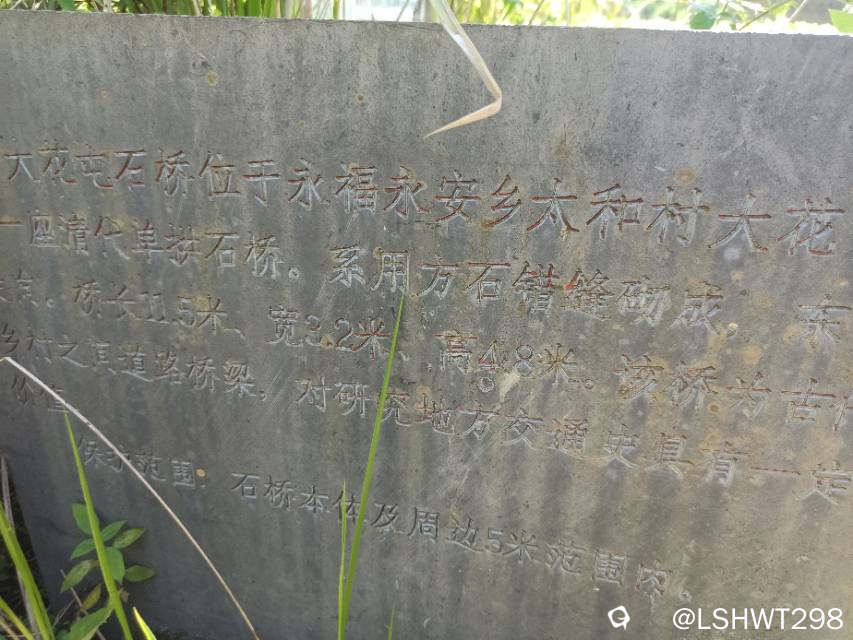 大花屯石桥位于永福永安乡太和村大花
一座清代单拱石桥。系用方石错缝砌成，东
桥长11.5米、宽3.2米、高4.8米。该桥为古代
乡村之间道路桥梁，对研究地方交通史具有一定
价值
保护范围：石桥本体及周边5米范围内。
@LSHWT298